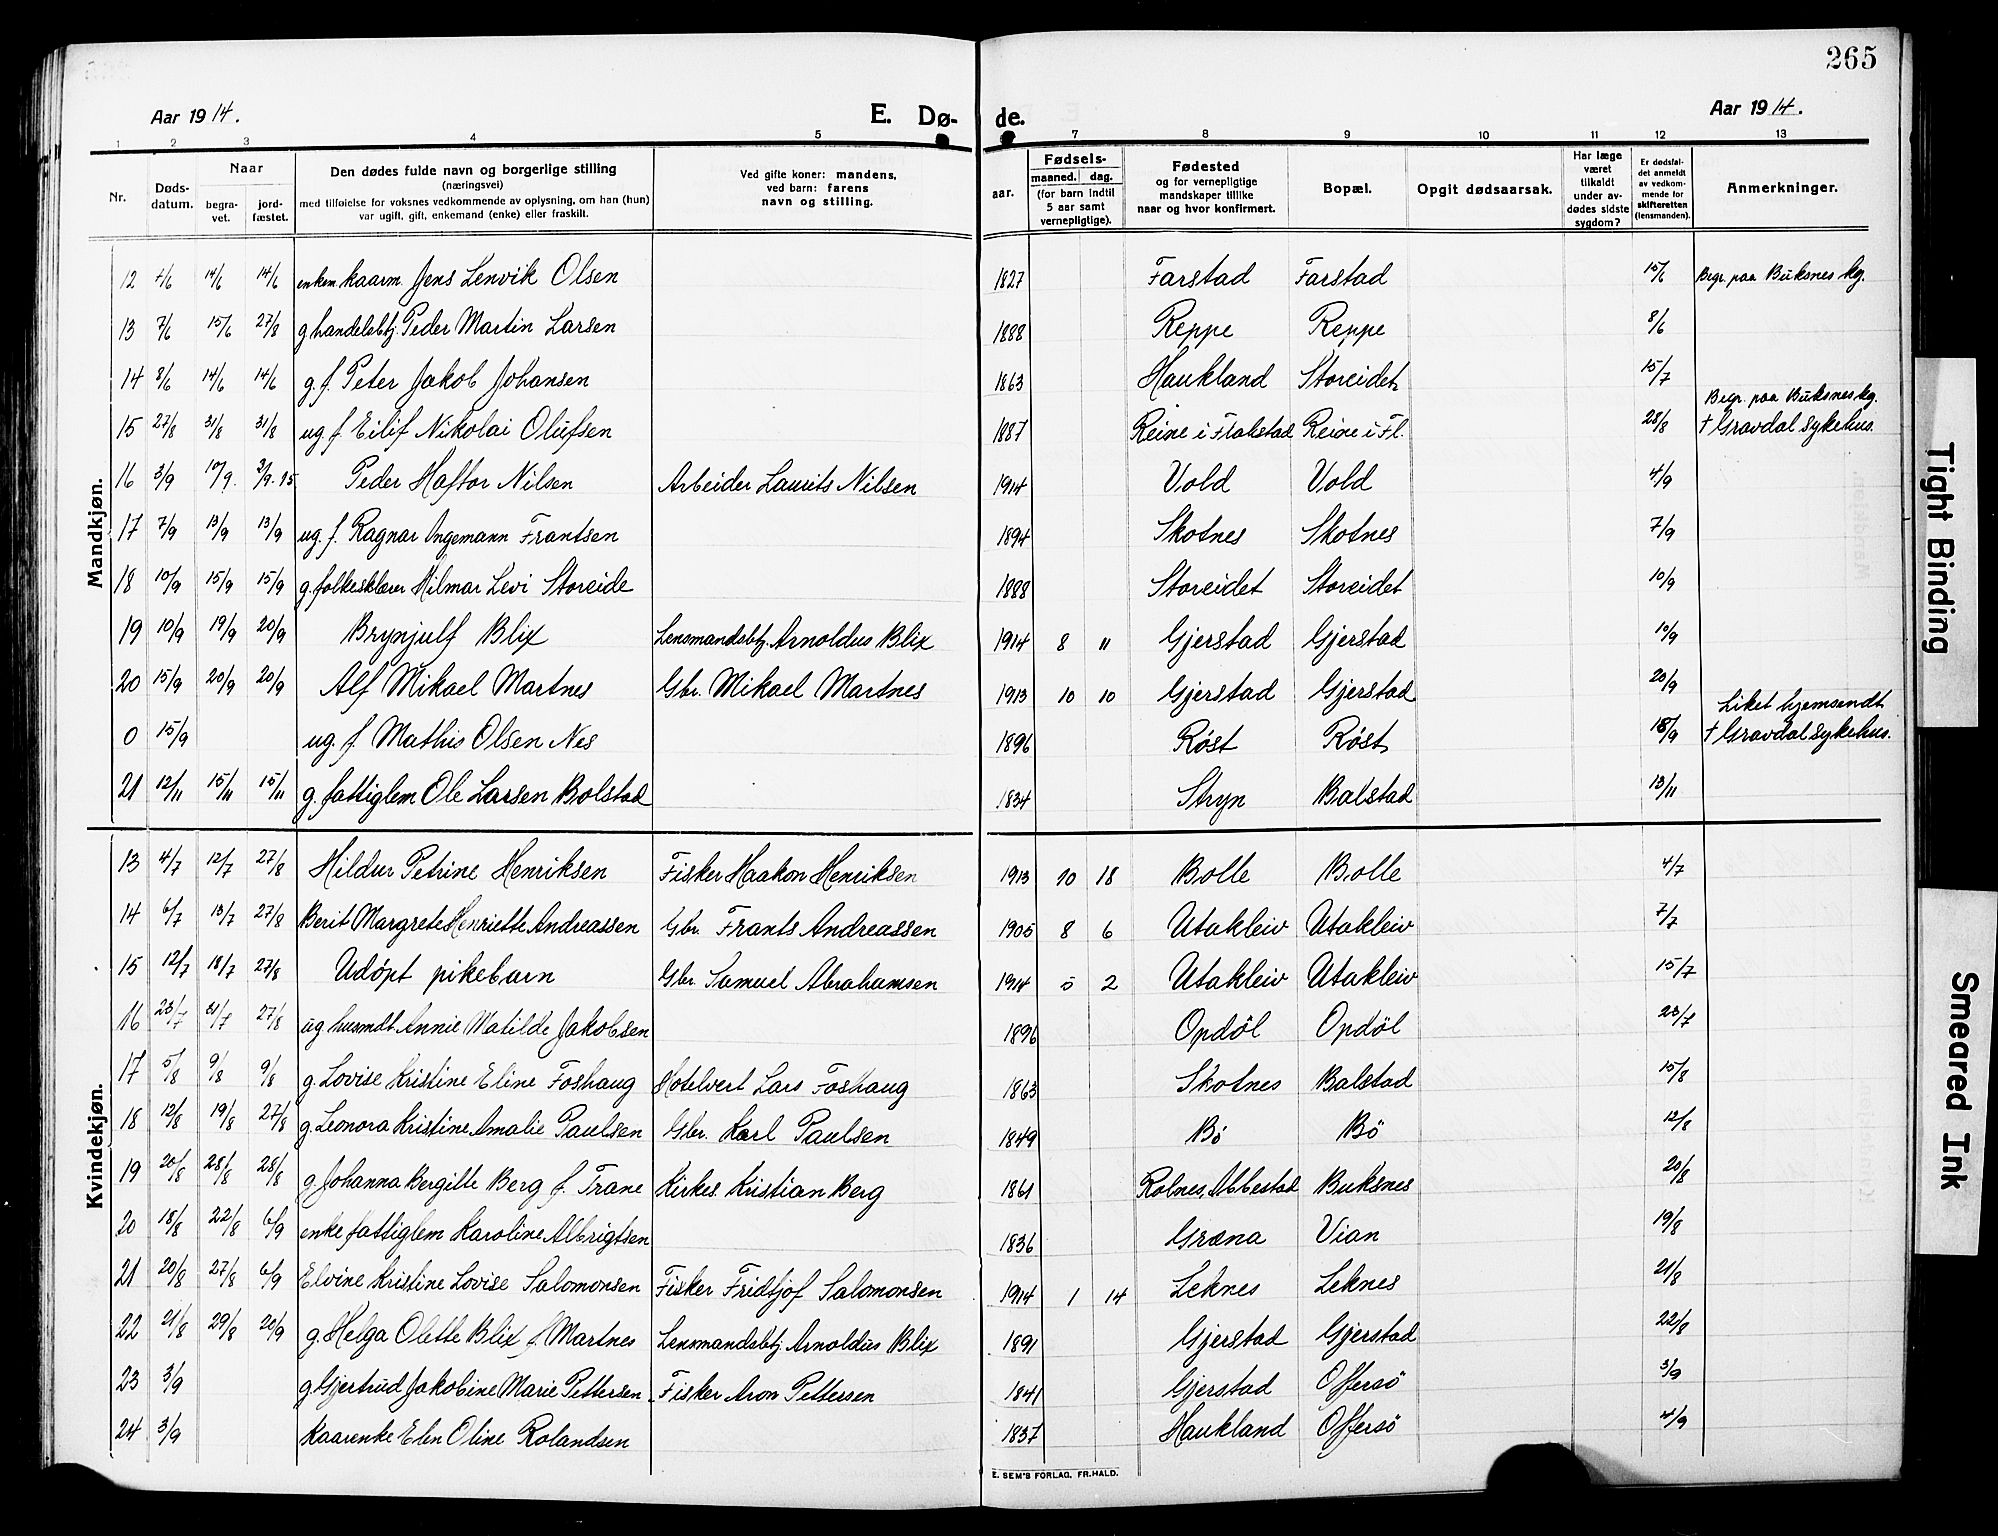 265
Aar 1914. E. Dø- de. Aar 1914.
1 2 3 4 5 7 8 9 10 11 12 13
Nr. Døds-datum. Naar begra-vet. jord-fæstet. Den dødes fulde navn og borgerlige stilling (næringsvei) med tilføielse for voksnes vedkommende av oplysning, om han (hun) var ugift, gift, enkemand (enke) eller fraskilt. Ved gifte koner: mandens, ved barn: farens navn og stilling. aar. Fødsels- maaned. dag. (for barn indtil 5 aar samt vernepligtige). Fødested og for vernepligtige mandskaper tillike naar og hvor konfirmert. Bopæl. Opgit dødsaarsak. Har læge været tilkaldt under av-dødes sidste sygdom? Er dødsfal-det anmeldt av vedkom-mende for skifteretten (lensmanden). Anmerkninger.
Mandkjøn.
12 4/6 14/6 14/6 enkem. kaarm. Jens Lenvik Olsen 1827 Farstad Farstad 15/6 Begr. paa Buksnes kg.
13 7/6 15/6 27/8 g. handelsbtj. Peder Martin Larsen 1888 Reppe Reppe 8/6
14 8/6 14/6 14/6 g. f. Peter Jakob Johansen 1863 Haukland Storeidet 15/7
Begr. paa Buksnes kg.
15 27/8 31/8 31/8 ug. f. Eilif Nikolai Olufsen 1887 Reine i Flakstad Reine i Fl. 28/8 † Gravdal sykehus.
16 3/9 10/9. 2/9.15 Peder Haftor Nilsen Arbeider Laurits Nilsen 1914 Vold Vold 4/9
17 7/9 13/9 13/9 ug. f. Ragnar Ingemann Frantsen 1894 Skotnes Skotnes 7/9
18 10/9 15/9 15/9 g. folkesklærer Hilmar Levi Storeide 1888 Storeidet Storeidet 10/9
19 10/9 19/9 20/9 Brynjulf Blix Lensmandsbtj. Arnoldus Blix 1914 8 11 Gjerstad Gjerstad 10/9
20 15/9 20/9 20/9 Alf Mikael Martnes Gbr. Mikael Martnes 1913 10 10 Gjerstad Gjerstad 20/9
Liket hjemsendt
0 15/9 ug. f. Mathis Olsen Nes 1896 Røst Røst 18/9 † Gravdal sykehus.
21 12/11 15/11 15/11 g. fattiglem Ole Larsen Bolstad 1834 Stryn Balstad 13/11
Kvindekjøn.
13 4/7 12/7 27/8 Hildur Petrine Henriksen Fisker Haakon Henriksen 1913 10 18 Bolle Bolle 4/7
14 6/7 13/7 27/8 Berit Margrete Henriette Andreassen Gbr. Frants Andreassen 1905 8 6 Utakleiv Utakleiv 7/7
15 12/7 18/7 27/8 Udøpt pikebarn Gbr. Samuel Abrahamsen 1914 5 2 Utakleiv Utakleiv 15/7
16 23/7 31/7 27/8 ug husmdt. Annie Matilde Jakobsen 1896 Opdøl Opdøl 23/7
17 5/8 9/8 9/8 g. Lovise Kristine Eline Foshaug Hotelvert Lars Foshaug 1863 Skotnes Balstad 15/8
18 12/8 19/8 27/8 g. Leonora Kristine Amalie Paulsen Gbr. Karl Paulsen 1849 Bø Bø 12/8
19 20/8 28/8 28/8 g. Johanna Bergitte Berg f. Trane Kirkes. Kristian Berg 1861 Rolnes, Ibbestad Buksnes 20/8
20 18/8 22/8 6/9 enke fattiglem Karoline Albrigtsen 1836 Græna Vian 19/8
21 20/8 27/8 6/9 Elvine Kristine Lovise Salomonsen Fisker Fridtjof Salomonsen 1914 1 14 Leknes Leknes 21/8
22 21/8 29/8 20/9 g. Helga Olette Blix f Martnes Lensmandsbtj Arnoldus Blix 1891 Gjerstad Gjerstad 22/8
23 3/9 g. Gjertrud Jakobine Marie Pettersen Fisker Aron Pettersen 1841 Gjerstad Offersø 3/9
24 3/9 Kaarenke Elen Oline Rolandsen 1837 Haukland Offersø 4/9
E. SEM'S FORLAG, FR.HALD.
Tight Binding
Smeared Ink